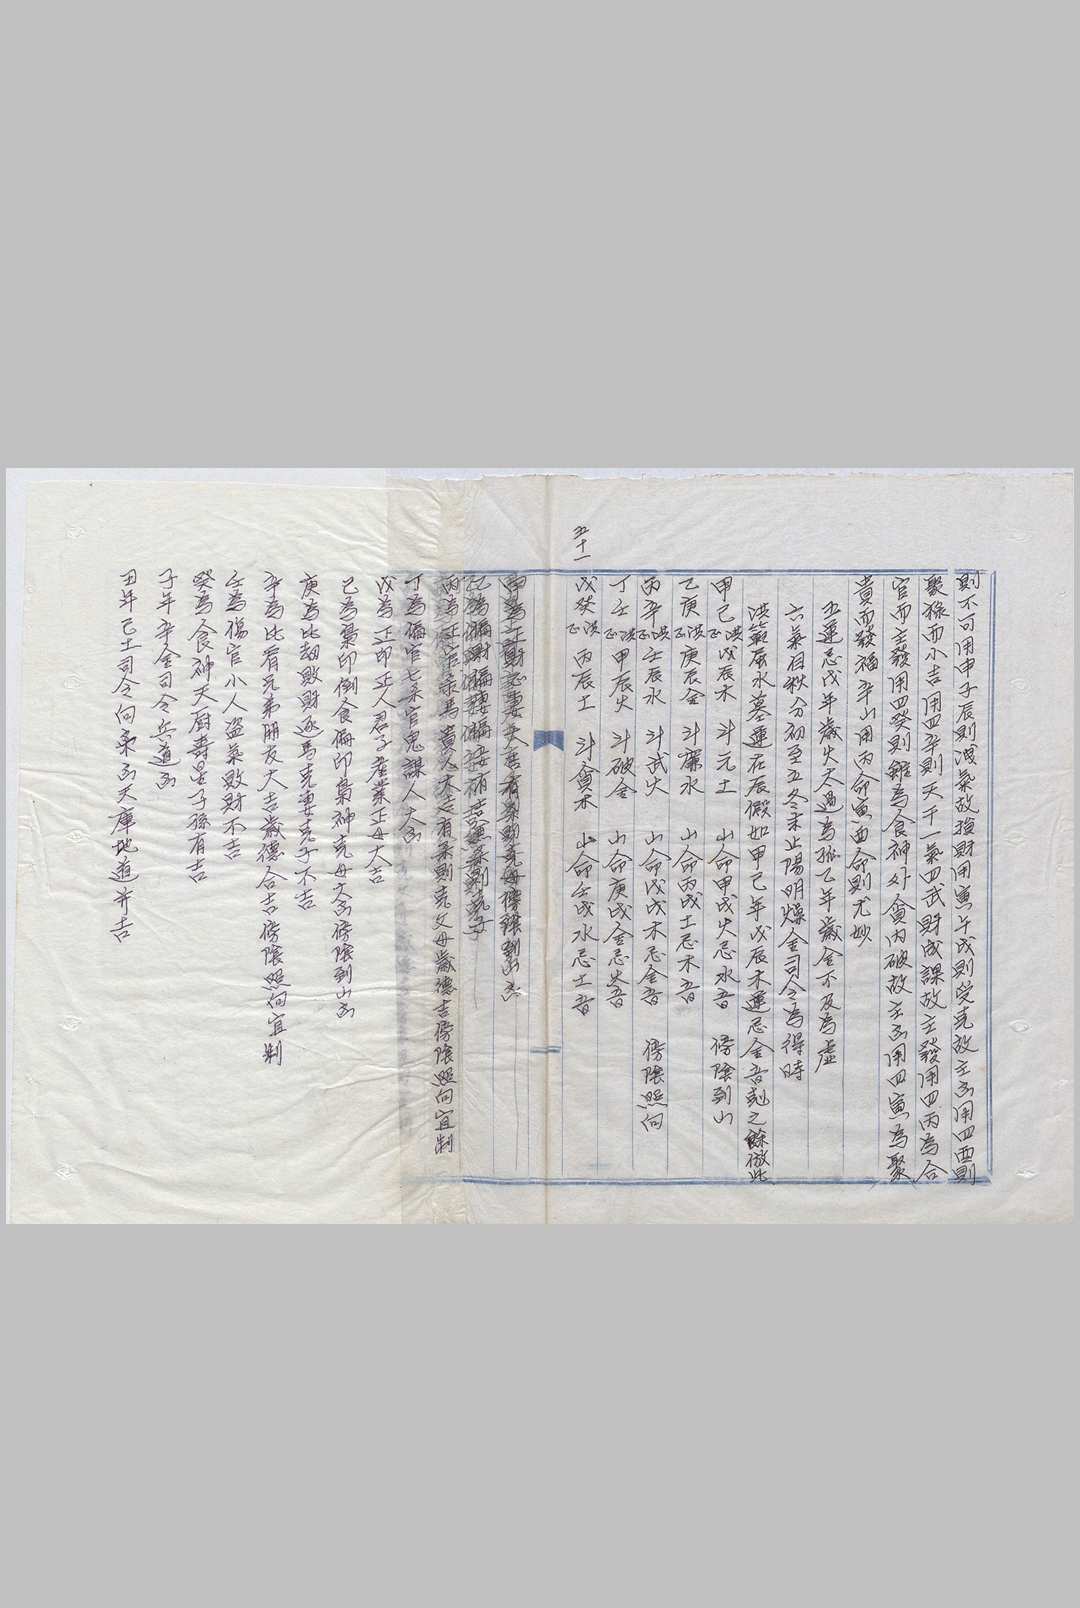 則不可用申子辰則洩氣故損財用寅午戌則受克故主凶用四酉則
聚祿而小吉用四辛則天干一氣四武財成課故主發用四丙為合
官而主發用四癸則雖為食神外貪內破故主凶用四寅為聚
貴而發福辛山用丙命寅酉命則尤妙
五運忌戊年歲火太過為孤乙年歲金不及為虛
六氣自秋分初至立冬末止陽明燥金司令為得時
洪範辰水墓運在辰假如甲己年戊辰木運忌金音剋之餘倣此
甲己 洪正 戊辰木 斗元土 山命甲戌火忌水音 傍陰到山
乙庚 洪正 庚辰金 斗廉水 山命丙戌土忌木音
丙辛 洪正 壬辰水 斗武火 山命戊戌木忌金音 傍陰照向
丁壬 洪正 甲辰火 斗破金 山命庚戌金忌火音
戊癸 洪正 丙辰土 斗貪木 山命壬戌水忌土音
五十一
甲為正財
乙為偏財
丙為正官 有氣則克父母歲德吉傍陰照向宜制
丁為偏官七杀官鬼謀人大凶
戊為正印正人君子產業正母大吉
己為梟印倒食偏印梟神克母大凶傍陰到山凶
庚為比劫敗財逐馬克妻克子不吉
辛為比肩兄弟朋友大吉歲德合吉傍陰照向宜制
壬為傷官小人盜氣敗財不吉
癸為食神天廚壽星子孫有吉
子年辛金司令兵道凶
丑年己土司令向杀凶天庫地道并吉